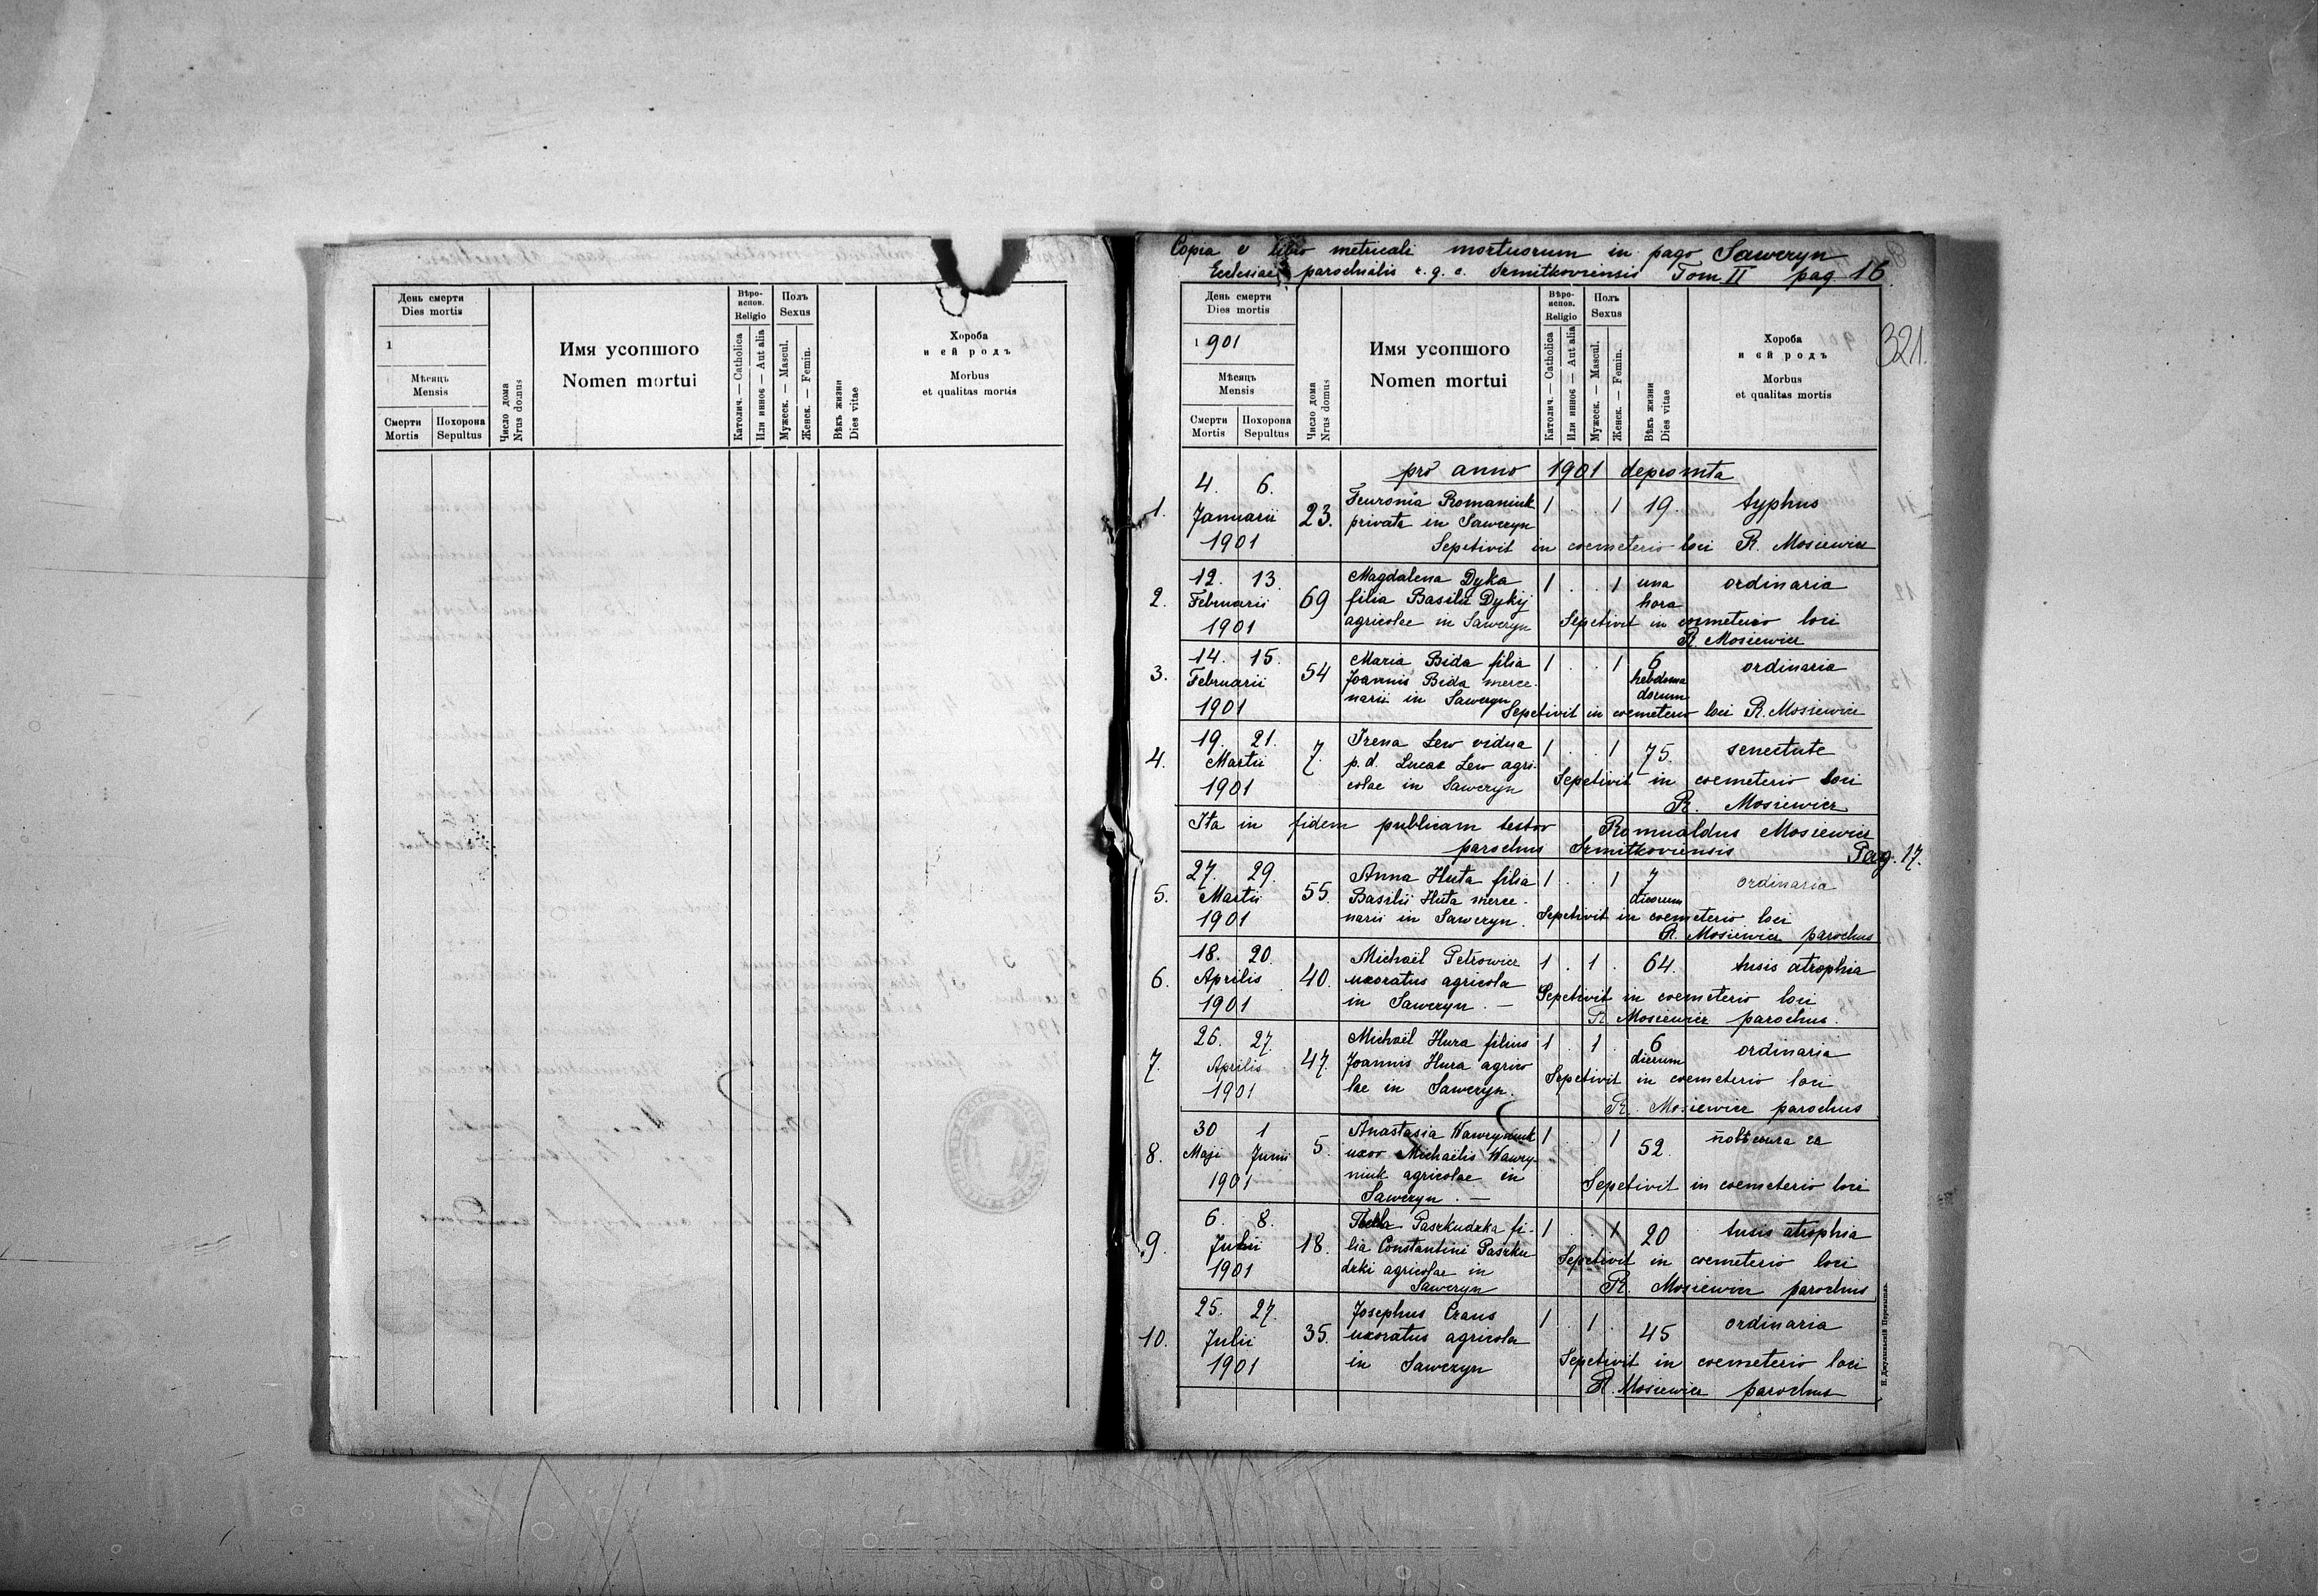 День смерти
Dies mortis
1
Мѣсяць
Mensis
Смерти
Mortis
Похорона
Sepultus
Число дома
Nrus domus
Имя усопшого
Nomen mortui
Вѣро-
испов.
Religio
Католич. — Catholica
Или инное — Aut alia
Полъ
Sexus
Мужеск. — Mascul.
Женск. — Femin.
Вѣкъ жизни
Dies vitae
Хороба
и єй родъ
Morbus
et qualitas mortis
Copia e libro metricali mortuorum in pago Sawczyn
Ecclesiae parochialis r. g. c. Szmitkoviensis Tom II pag. 16.
321.
День смерти
Dies mortis
1901
Мѣсяць
Mensis
Смерти
Mortis
Похорона
Sepultus
Число дома
Nrus domus
Имя усопшого
Nomen mortui
Вѣро-
испов.
Religio
Католич. — Catholica
Или инное — Aut alia
Полъ
Sexus
Мужеск. — Mascul.
Женск. — Femin.
Вѣкъ жизни
Dies vitae
Хороба
и єй родъ
Morbus
et qualitas mortis
pro anno 1901 depromta
1. 4. 6. Januarii 1901 23. Feuronia Romaniuk 1 . . 1 19. typhus
privata in Sawczyn
Sepelivit in coemeterio loci R. Mosiewicz
2. 12. 13. Februarii 1901 69 Magdalena Dyka 1 . . 1 una hora ordinaria
filia Basilii Dykij
agricolae in Sawczyn Sepelivit in coemeterio loci
R. Mosiewicz
3. 14. 15. Februarii 1901 54 Maria Bida filia 1 . . 1 6 hebdoma
dorum ordinaria
Joannis Bida merce-
narii in Sawczyn Sepelivit in coemeterio loci R. Mosiewicz
4. 19. 21. Martii 1901 7. Irena Lew vidua 1 . . 1 75. senectute
p. d. Lucae Lew agri-
colae in Sawczyn Sepelivit in coemeterio loci
R. Mosiewicz
Ita in fidem publicam testor Romualdus Mosiewicz
parochus Szmitkoviensis
Pag. 17.
5. 27. 29. Martii 1901 55 Anna Huta filia 1 . . 1 7 dierum ordinaria
Basilii Huta merce-
narii in Sawczyn. Sepelivit in coemeterio loci
R. Mosiewicz parochus
6. 18. 20. Aprilis 1901 40. Michaël Petrowicz 1 . 1 . 64. tusis atrophia
uxoratus agricola
in Sawczyn. — Sepelivit in coemeterio loci
R. Mosiewicz parochus.
7. 26. 27. Aprilis 1901 47. Michaël Hura filius 1 . 1 . 6 dierum ordinaria
Joannis Hura agrico
lae in Sawczyn. Sepelivit in coemeterio loci
R. Mosiewicz parochus
8. 30 Maji 1 Junii 1901 5. Anastasia Wawryniuk 1 . . 1 52.
uxor Michaëlis Wawry-
niuk agricolae in Sepelivit in coemeterio loci
Sawczyn. —
9. 6. 8. Julii 1901 18. Paszkudzka fi- 1 . . 1 20 tusis atrophia
lia Constantini Paszku
dzki agricolae in Sepelivit in coemeterio loci
Sawczyn R. Mosiewicz parochus
10. 25. 27. Julii 1901 35. Josephus Czaus 1 . 1 . 45 ordinaria
uxoratus agricola
in Sawczyn Sepelivit in coemeterio loci
R. Mosiewicz parochus
Н. Джулыньскій Перемышль.